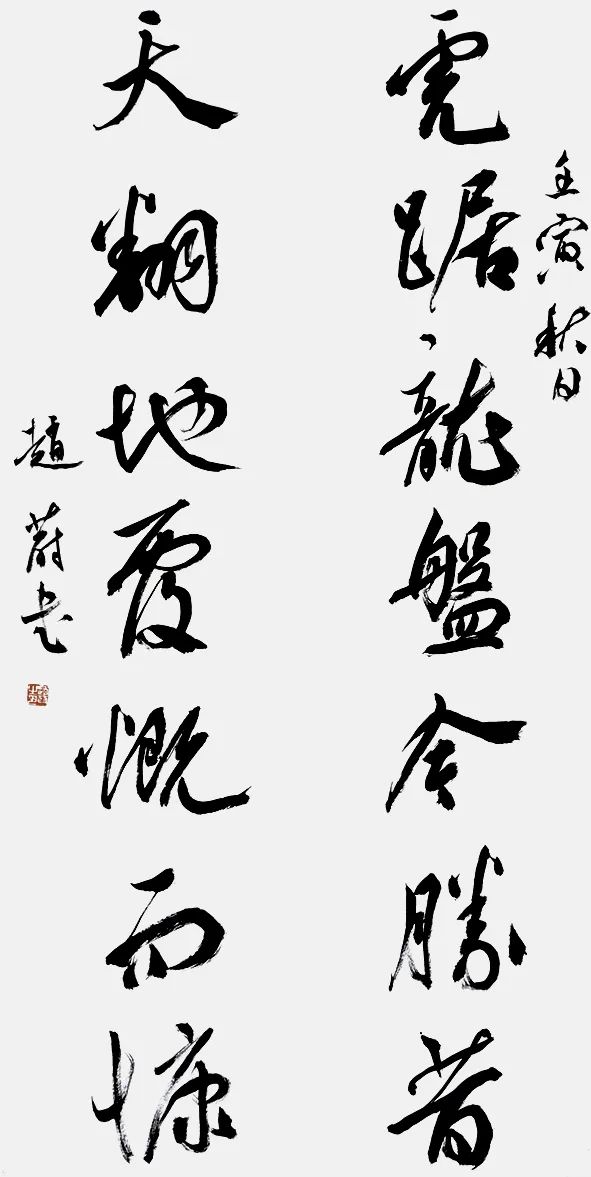 壬寅秋日
虎踞龍盤今勝昔
天翻地覆慨而慷
趙蔚書